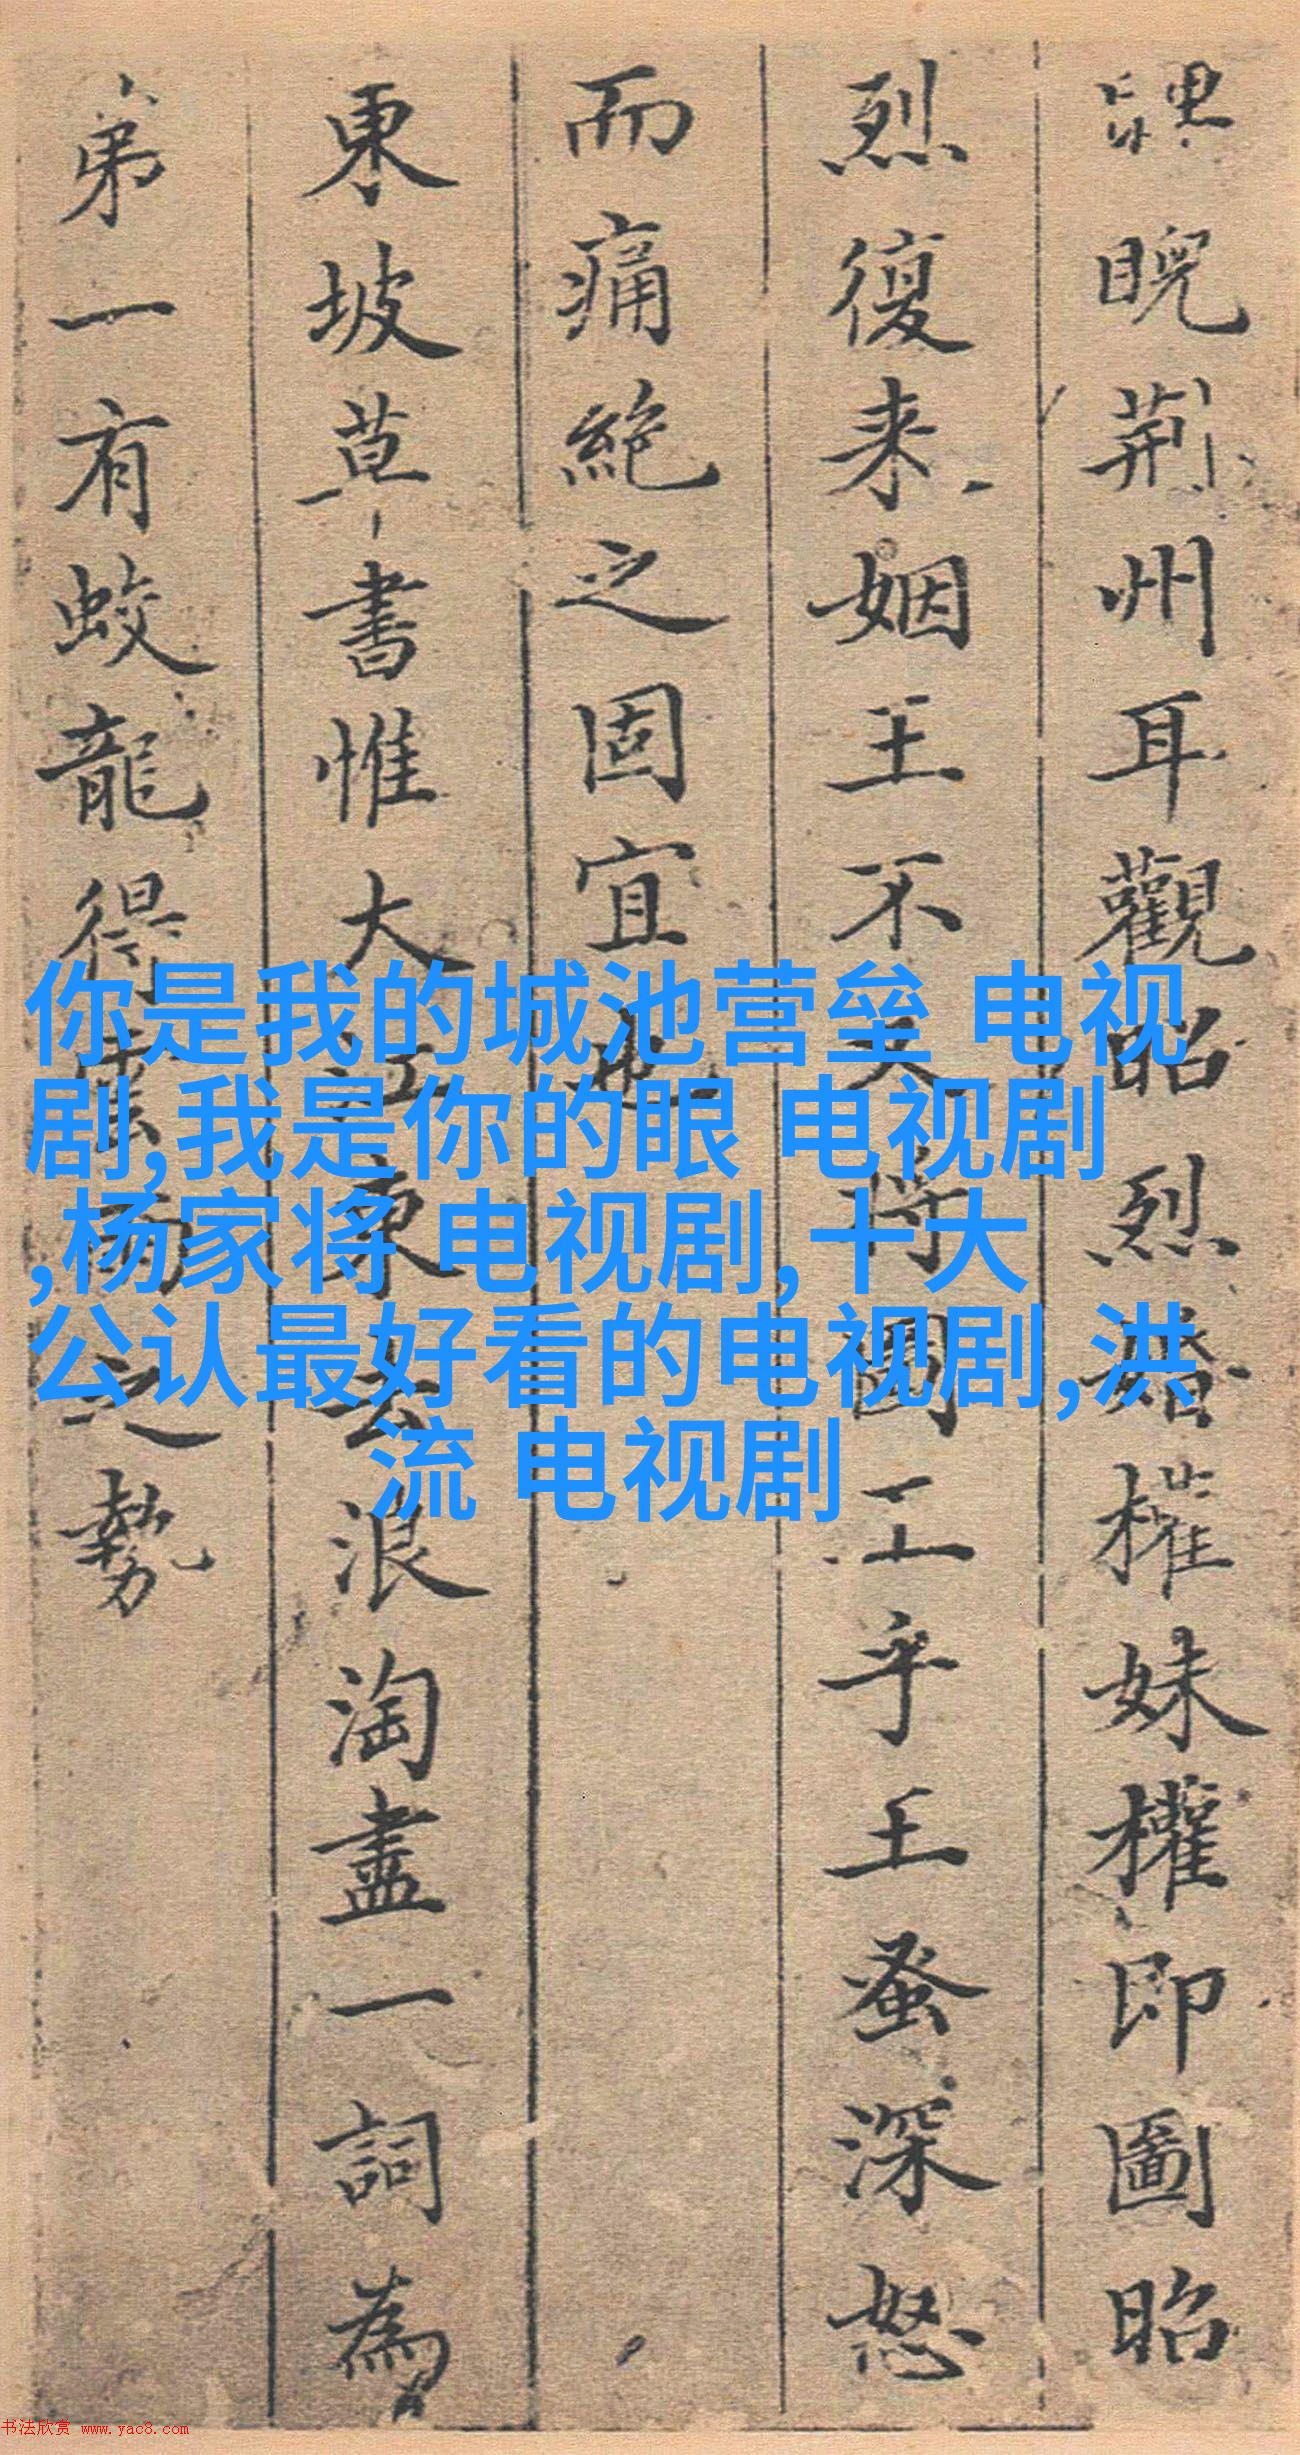 睨荆州耳觀昭烈婚權妹權即圖昭
烈復来姻王不大将國工乎王蚤深怒
而痛絶之固宜也
東坡草書惟大江東去浪淘盡一詞為
弟一有蛟龍得雲雨之勢
你是我的城池营垒 电视
剧,我是你的眼 电视剧
,杨家将 电视剧,十大
公认最好看的电视剧,洪
流 电视剧
书法欣赏 www.yac8.com